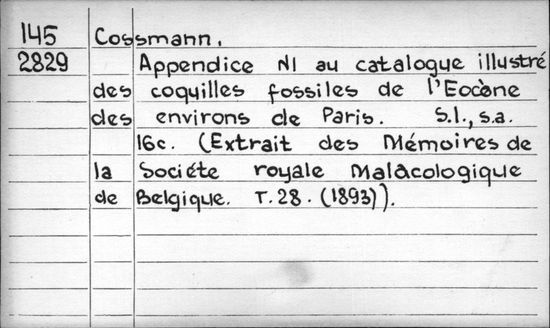 145 Cossmann.
2829 Appendice N1 au catalogue illustré
des coquilles fossiles de l'Eocène
des environs de Paris. S.l., s.a.
16c. (Extrait des Mémoires de
la Société royale Malacologique
de Belgique. T. 28. (1893)).